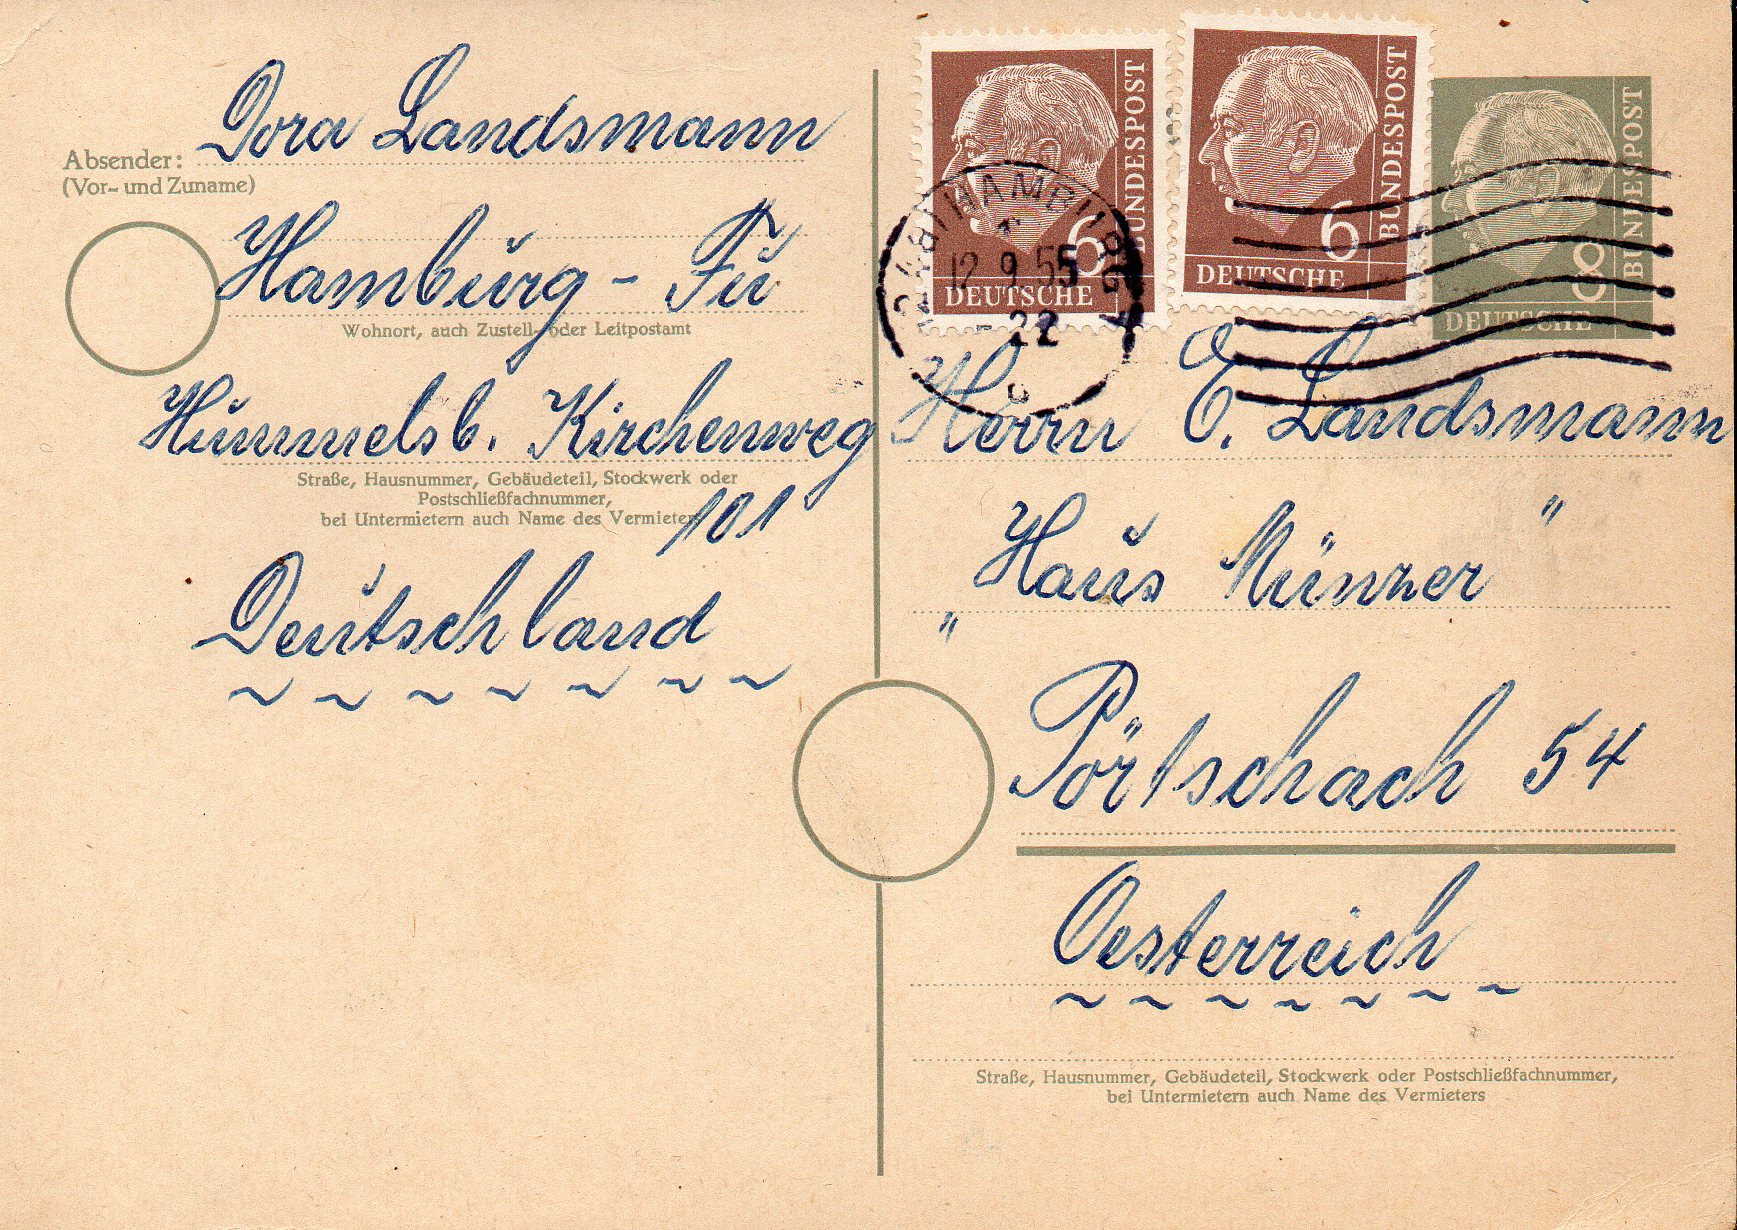 Absender: Dora Landsmann
(Vor- und Zuname)
Hamburg - Fu
Wohnort, auch Zustell- oder Leitpostamt
Hummelsb. Kirchenweg
Straße, Hausnummer, Gebäudeteil, Stockwerk oder
Postschließfachnummer,
bei Untermietern auch Name des Vermieters
101
Deutschland
6
DEUTSCHE
BUNDESPOST
6
DEUTSCHE
BUNDESPOST
8
DEUTSCHE
BUNDESPOST
HAMBURG
12.9.55
- 22
c
Herrn E. Landsmann
"Haus Münzer"
Pörtschach 54
Oesterreich
Straße, Hausnummer, Gebäudeteil, Stockwerk oder Postschließfachnummer,
bei Untermietern auch Name des Vermieters